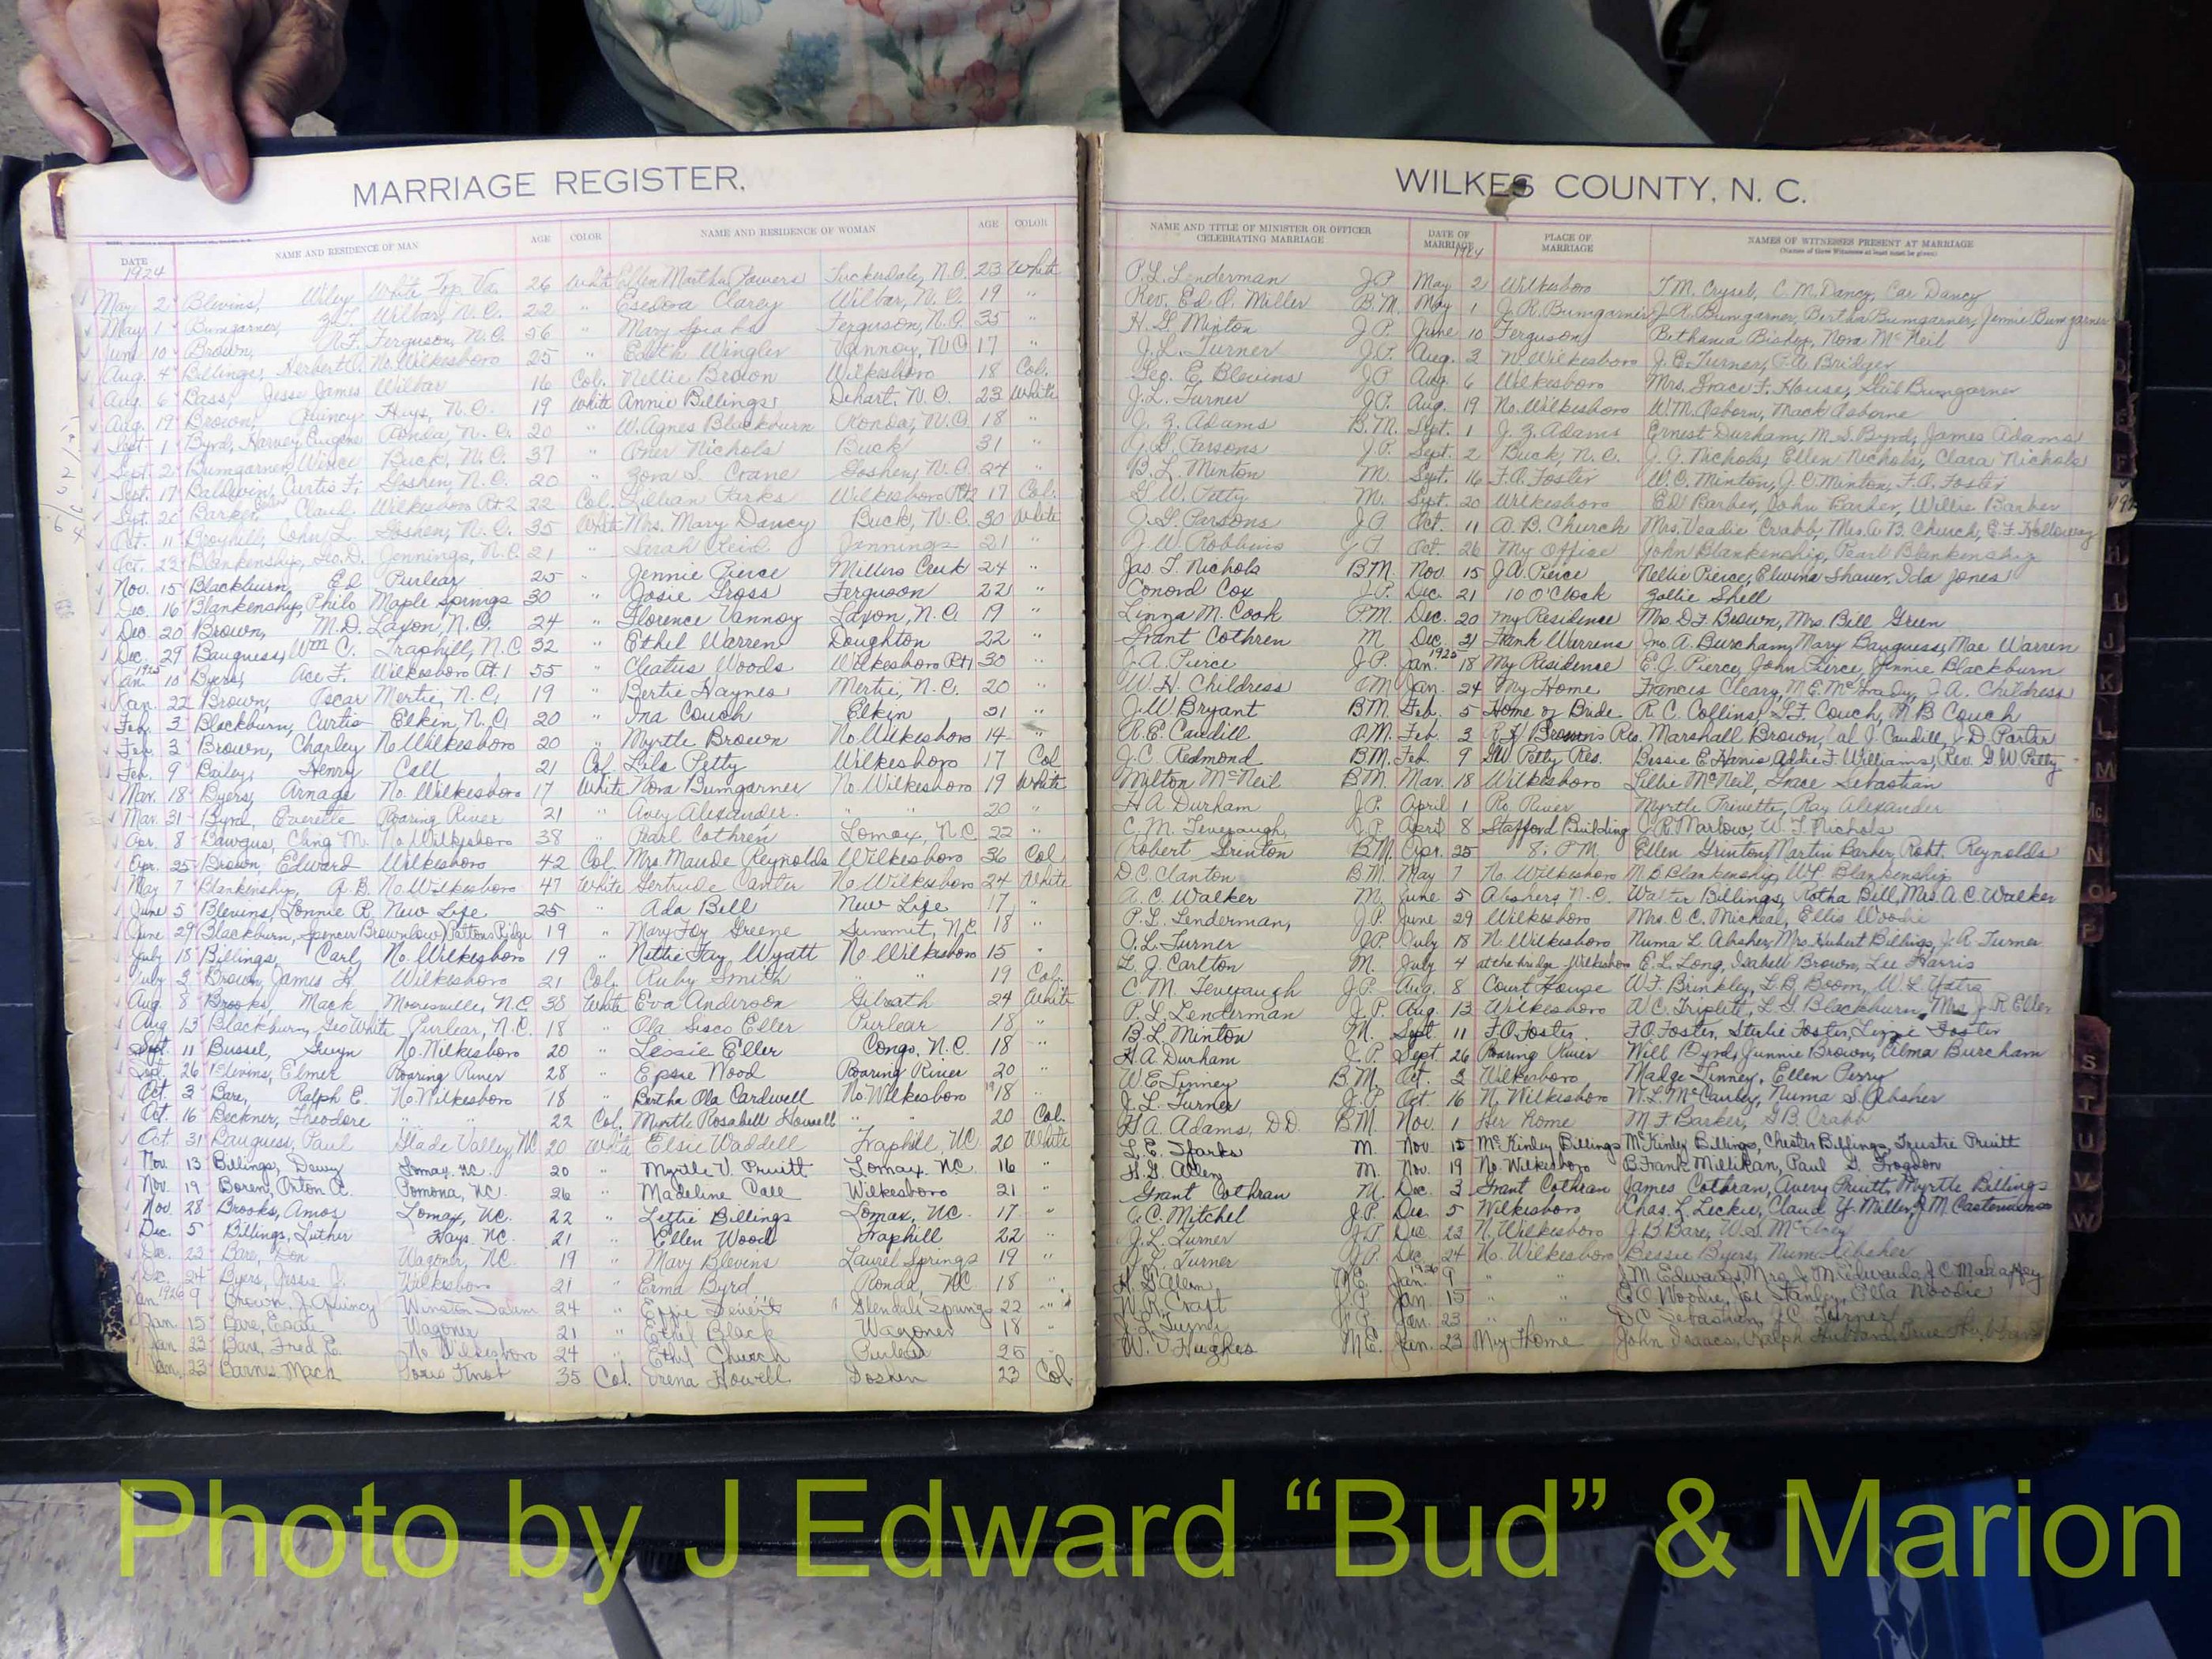 MARRIAGE REGISTER.
DATE NAME AND RESIDENCE OF MAN AGE COLOR NAME AND RESIDENCE OF WOMAN AGE COLOR
1924
May 2 Blevins, Wiley White Top Va. 26 White Ellen Martha Powers Tuckerdale, N.C. 23 White
May 1 Bumgarner, Wilbar, N.C. 22 " Clarey Wilbar, N.C. 19 "
June 10 Brown, R.F. Ferguson, N.C. 36 " Mary Ferguson, N.C. 35 "
Aug. 4 Billings, Herbert No. Wilkesboro 25 " Edith Wingler Vannoy, N.C. 17 "
Aug. 6 Bass, Jesse James Wilbar 16 Col. Nellie Brown Wilkesboro 18 Col.
Aug. 19 Brown, Quincy Hays, N.C. 19 White Annie Billings Dehart, N.C. 23 White
Sept 1 Byrd, Harvey Eugene Ronda, N.C. 20 " W. Agnes Blackburn Ronda, N.C. 18 "
Sept. 2 Bumgarner, Vince Buck, N.C. 37 " Nichols Buck 31 "
Sept. 17 Baldwin, Curtis F. Goshen, N.C. 20 " Zora S. Crane Goshen, N.C. 24 "
Sept. 20 Barker, Claud Wilkesboro Rt 2 22 Col. Lillian Parks Wilkesboro Rt 2 17 Col.
Oct. 11 Broyhill, John L. Goshen, N.C. 35 White Mrs. Mary Dancy Buck, N.C. 30 White
Oct. 23 Blankenship, Geo. D. Jennings, N.C. 21 " Sarah Reid Jennings 21 "
Nov. 15 Blackburn, Ed Purlear 25 " Jennie Pierce Millers Creek 24 "
Dec. 16 Blankenship, Philo Maple Springs 30 " Josie Gross Ferguson 22 "
Dec. 20 Brown, M.D. Laxon, N.C. 24 " Florence Vannoy Laxon, N.C. 19 "
Dec. 29 Bauguess, Wm C. Traphill, N.C. 32 " Ethel Warren Doughton 22 "
Jan. 1925 10 Byers, Ace F. Wilkesboro Rt. 1 55 " Cleatus Woods Wilkesboro Rt 1 30 "
Jan. 22 Brown, Oscar Mertie, N.C. 19 " Bertie Haynes Mertie, N.C. 20 "
Feb. 3 Blackburn, Curtis Elkin, N.C. 20 " Ina Couch Elkin 21 "
Feb. 3 Brown, Charley No Wilkesboro 20 " Myrtle Brown No Wilkesboro 14 "
Feb. 9 Bailey, Henry Call 21 Col Lila Petty Wilkesboro 17 Col
Mar. 18 Byers, Arnage No. Wilkesboro 17 White Nora Bumgarner No. Wilkesboro 19 White
Mar. 31 Byrd, Everette Roaring River 21 " Avey Alexander. " " 20 "
Apr. 8 Bawgus, Cling M. No Wilkesboro 38 " Pearl Cothren Lomax, N.C. 22 "
Apr. 25 Brown, Edward Wilkesboro 42 Col. Mrs Maude Reynolds Wilkesboro 36 Col
May 7 Blankenship, No Wilkesboro 47 White Gertrude Canter No Wilkesboro 24 White
June 5 Blevins, Lonnie R. New Life 25 " Ada Bell New Life 17 "
June 29 Blackburn, Spencer (Brownlow) Patton Ridge 19 " Mary Fay Greene Summit, N.C. 18 "
July 18 Billings, Carl, No. Wilkesboro 19 " Nettie Fay Wyatt No Wilkesboro 15 "
July 2 Brown, James H. Wilkesboro 21 Col. Ruby Smith " " 19 Col.
Aug. 8 Brooks, Mack Mooresville, N.C. 38 White Eva Anderson Gilreath 24 White
Aug. 13 Blackburn, Geo White Purlear, N.C. 18 " Ola Sisco Eller Purlear 18 "
Sept. 11 Bussel, Gwyn No. Wilkesboro 20 " Lessie Eller Congo, N.C. 18 "
Sept. 26 Blevins, Elmer Roaring River 28 " Epsie Wood Roaring River 20 "
Oct. 3 Bare, Ralph E. No. Wilkesboro 18 " Bertha Ola Cardwell No. Wilkesboro 18 "
Oct. 16 Beckner, Theodore " " 22 Col. Myrtle Rosabell Howell " " 20 Col.
Oct. 31 Bauguess, Paul Glade Valley, NC 20 White Elsie Waddell Traphill, NC 20 White
Nov. 13 Billings, Dewy Lomax, NC. 20 " Myrtle V. Pruitt Lomax, NC 16 "
Nov. 19 Boren, Orton A. Pomona, NC. 26 " Madeline Call Wilkesboro 21 "
Nov. 28 Brooks, Amos Lomax, NC. 22 " Lettie Billings Lomax, NC. 17 "
Dec. 5 Billings, Luther Hays, NC. 21 " Ellen Wood Traphill 22 "
Dec. 22 Bare, Don Wagoner, NC. 19 " Mary Blevins Laurel Springs 19 "
Dec. 24 Byers, Jessie J. Wilkesboro 21 " Erma Byrd Ronda, NC 18 "
Jan. 1926 9 Brown, J. Quincy Winston Salem 24 " Effie Glendale Springs 22 "
Jan. 15 Bare, Wagoner 21 " Ethel Black Wagoner 18 "
Jan. 23 Bare, Fred E. No. Wilkesboro 24 " Ethel Church Purlear 25 "
Jan. 23 Barns, Mack Poors Knob 35 Col. Irena Howell Goshen 23 Col.
WILKES COUNTY, N. C.
NAME AND TITLE OF MINISTER OR OFFICER CELEBRATING MARRIAGE DATE OF MARRIAGE PLACE OF MARRIAGE NAMES OF WITNESSES PRESENT AT MARRIAGE
(Names of three Witnesses at least must be given)
1924
P.L. Lenderman J.P. May 2 Wilkesboro T.M. Crysel, C.M. Dancy, Car Dancy
Rev. Ed. Miller B.M. May 1 J.R. Bumgarner J.A. Bumgarner, Bertha Bumgarner, Jennie Bumgarner
H. G. Minton J.P. June 10 Ferguson Bethania Bishop, Nora McNeil
J.L. Turner J.P. Aug. 3 N. Wilkesboro J.E. Turner, Bridges
Geo. E. Blevins J.P. Aug. 6 Wilkesboro Mrs. Grace F. House, Bumgarner
J.L. Turner J.P. Aug. 19 No. Wilkesboro W.M. Osborn, Mack Osborne
J. Z. Adams B.M. Sept. 1 J. Z. Adams Ernest Durham, M.S. Byrd, James Adams
J.G. Parsons J.P. Sept. 2 Buck, N.C. J.J. Nichols, Ellen Nichols, Clara Nichols
B.L. Minton M. Sept. 16 F.O. Foster W.C. Minton, J.C. Minton, F.O. Foster
G.W. Petty M. Sept. 20 Wilkesboro Ed Barber, John Barber, Willie Barber
J.G. Parsons J.P. Oct. 11 A.B. Church Mrs. Veadie Crabb, Mrs. A.B. Church, E.F. Holloway
J.W. Robbins J.P. Oct. 26 My Office John Blankenship, Pearl Blankenship
Jas. F. Nichols B.M. Nov. 15 J.A. Pierce Nellie Pierce, Elvina Shaver, Ida Jones
Conord Cox J.P. Dec. 21 10 O'Clock Zollie Shell
Linza M. Cook P.M. Dec. 20 My Residence Mrs D.F. Brown, Mrs. Bill Green
Grant Cothren M Dec. 31 Frank Warrens Jno. A. Burcham, Mary Bauguess, Mae Warren
J.A. Pierce J.P. Jan. 1925 18 My Residence E.J. Pierce, John Pierce, Jennie Blackburn
W.H. Childress O.M. Jan. 24 My Home Frances Cleary, M.E. McGrady, J.A. Childress
J.W. Bryant B.M. Feb. 5 Home of Bride R.C. Collins, L.F. Couch, N.B Couch
R.E. Caudill O.M. Feb. 3 Browns Res. Marshall Brown, Al J. Caudill, J.D. Parter
J.C. Redmond B.M. Feb. 9 G.W. Petty Res. Bessie E. Harris, Addie F. Williams, Rev. G.W. Petty
Milton McNeil B.M. Mar. 18 Wilkesboro Lillie McNeil, Grace Sebastian
H.A. Durham J.P. April 1 Ro. River Myrtle Privette, Ray Alexander
C.M. Tevepaugh, J.P. April 8 Stafford Building J.R. Marlow, W.T. Nichols
Robert Grinton B.M. Apr. 25 8: P.M. Ellen Grinton, Martin Barker, Robt. Reynolds
D.C. Clanton B.M. May 7 No. Wilkesboro Blankenship, W.F. Blankenship
A.C. Walker M. June 5 Abshers N.C. Walter Billings, Rotha Bell, Mrs A.C. Walker
P.L. Lenderman, J.P. June 29 Wilkesboro Mrs. C.C. Micheal, Ellis Woodie
J.L. Turner J.P. July 18 N. Wilkesboro Numa L. Absher, Mrs. Hubert Billings, J.R. Turner
L.J. Carlton M. July 4 at the bridge - Wilkesboro E.L. Long, Isabell Brown, Lee Harris
C.M. Tevepaugh J.P. Aug. 8 Court House W.F. Brinkley, L.B. Boom, W.L. Yates
P.L. Lenderman J.P. Aug. 13 Wilkesboro W.C. Triplett, L.G. Blackburn, Mrs J.R. Eller
B.L. Minton M. Sept 11 F.O. Foster. F.O. Foster, Stubie Foster, Lizzie Foster
H.A. Durham J.P. Sept. 26 Roaring River Will Byrd, Junnie Brown, Alma Burcham
W.E. Linney B.M. Oct. 3 Wilkesboro Madge Linney, Ellen Perry
J.L. Turner J.P. Oct. 16 N. Wilkesboro McCauley, Numa S. Absher
H.A. Adams, D.D. B.M. Nov. 1 Her home M.F. Barker, G.B. Crabb
L.E. Sparks M. Nov. 15 McKinley Billings McKinley Billings, Chester Billings, Trustie Pruitt
H.G. Allen M. Nov. 19 No. Wilkesboro B. Frank Millikan, Paul S. Frogdon
Grant Cothran M. Dec. 3 Grant Cothran James Cothran, Avery Pruitt, Myrtle Billings
C. Mitchel J.P. Dec. 5 Wilkesboro Chas. L. Leckie, Claud Y. Miller, J.M. Castevens
J.L. Turner J.P. Dec. 23 N. Wilkesboro J.B. Bare, W.S.
J.L. Turner J.P. Dec. 24 No. Wilkesboro Bessie Byers, Numa Absher
H.G. Allen M.E. Jan. 1926 9 " " J.M. Edwards, Mrs. J.M. Edwards, J.C. Mahaffey
W.K. Craft J.P. Jan. 15 " " E.C. Woodie, Joe Stanley, Ella Woodie
J.L. Turner J.P. Jan. 23 D.C. Sebastian, J.C. Turner
W. V. Hughes M.E. Jan. 23 My Home John Isaacs, Ralph Hubbard,
D
E
F
192
H
I
J
K
L
M
Mc
N
O
P
S
T
U
V
W
Photo by J Edward “Bud” & Marion